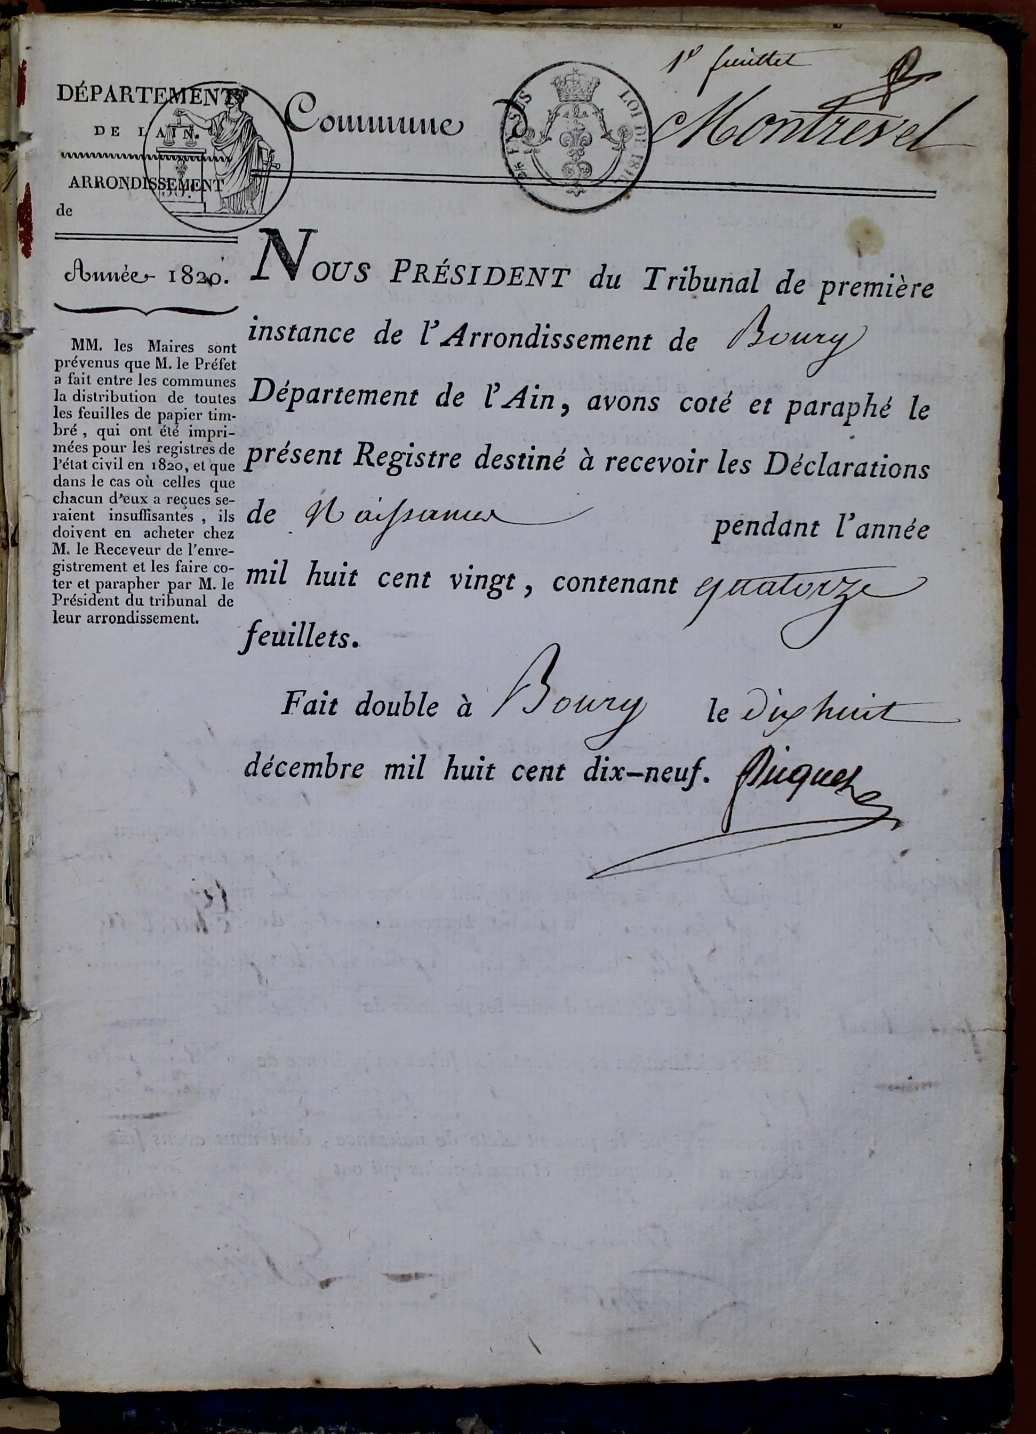 1er feuillet
DÉPARTEMENT
DE L'AIN.
ARRONDISSEMENT
de
Commune de Montrevel
LOI DE 181
Année 1820.
MM. les Maires sont
prévenus que M. le Préfet
a fait entre les communes
la distribution de toutes
les feuilles de papier tim-
bré, qui ont été impri-
mées pour les registres de
l'état civil en 1820, et que
dans le cas où celles que
chacun d'eux a reçues se-
raient insuffisantes, ils
doivent en acheter chez
M. le Receveur de l'enre-
gistrement et les faire co-
ter et parapher par M. le
Président du tribunal de
leur arrondissement.
NOUS PRÉSIDENT du Tribunal de première
instance de l'Arrondissement de Bourg
Département de l'Ain, avons coté et paraphé le
présent Registre destiné à recevoir les Déclarations
de Naissances pendant l'année
mil huit cent vingt, contenant quatorze
feuillets.
Fait double à Bourg le dix huit
décembre mil huit cent dix-neuf.